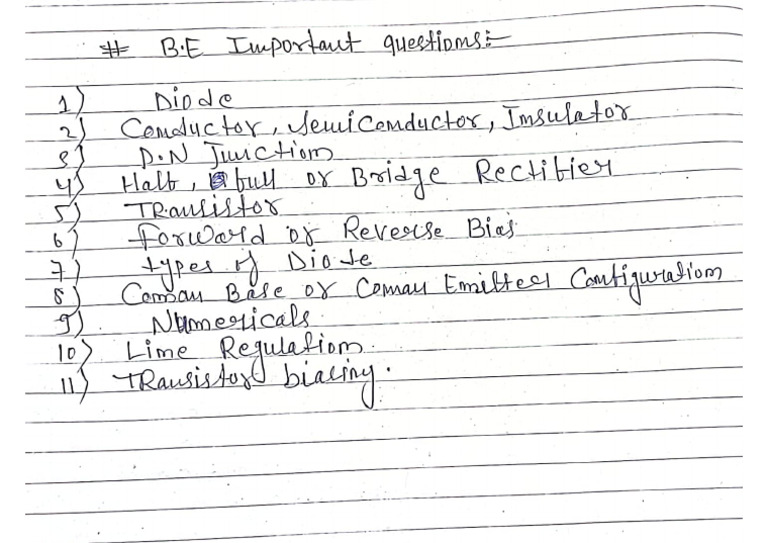 # B.E Important questions:-
1) Diode
2) Conductor, SemiConductor, Insulator
3) P.N Junction
4) Half, full or Bridge Rectifier
5) TRansistor
6) forward or Reverse Bias
7) types of Diode
8) Comman Base or Comman Emitter Configuration
9) Numericals
10) Line Regulation.
11) TRansistor biacing.